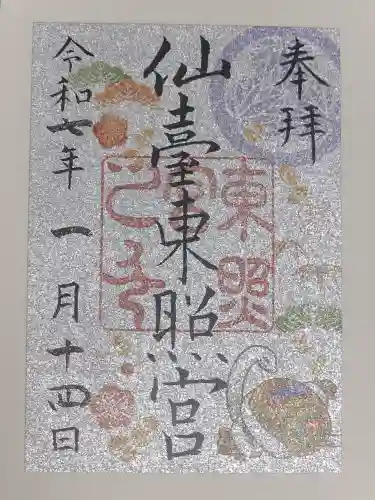 奉拝
仙臺東照宮
令和七年 一月十四日
東照